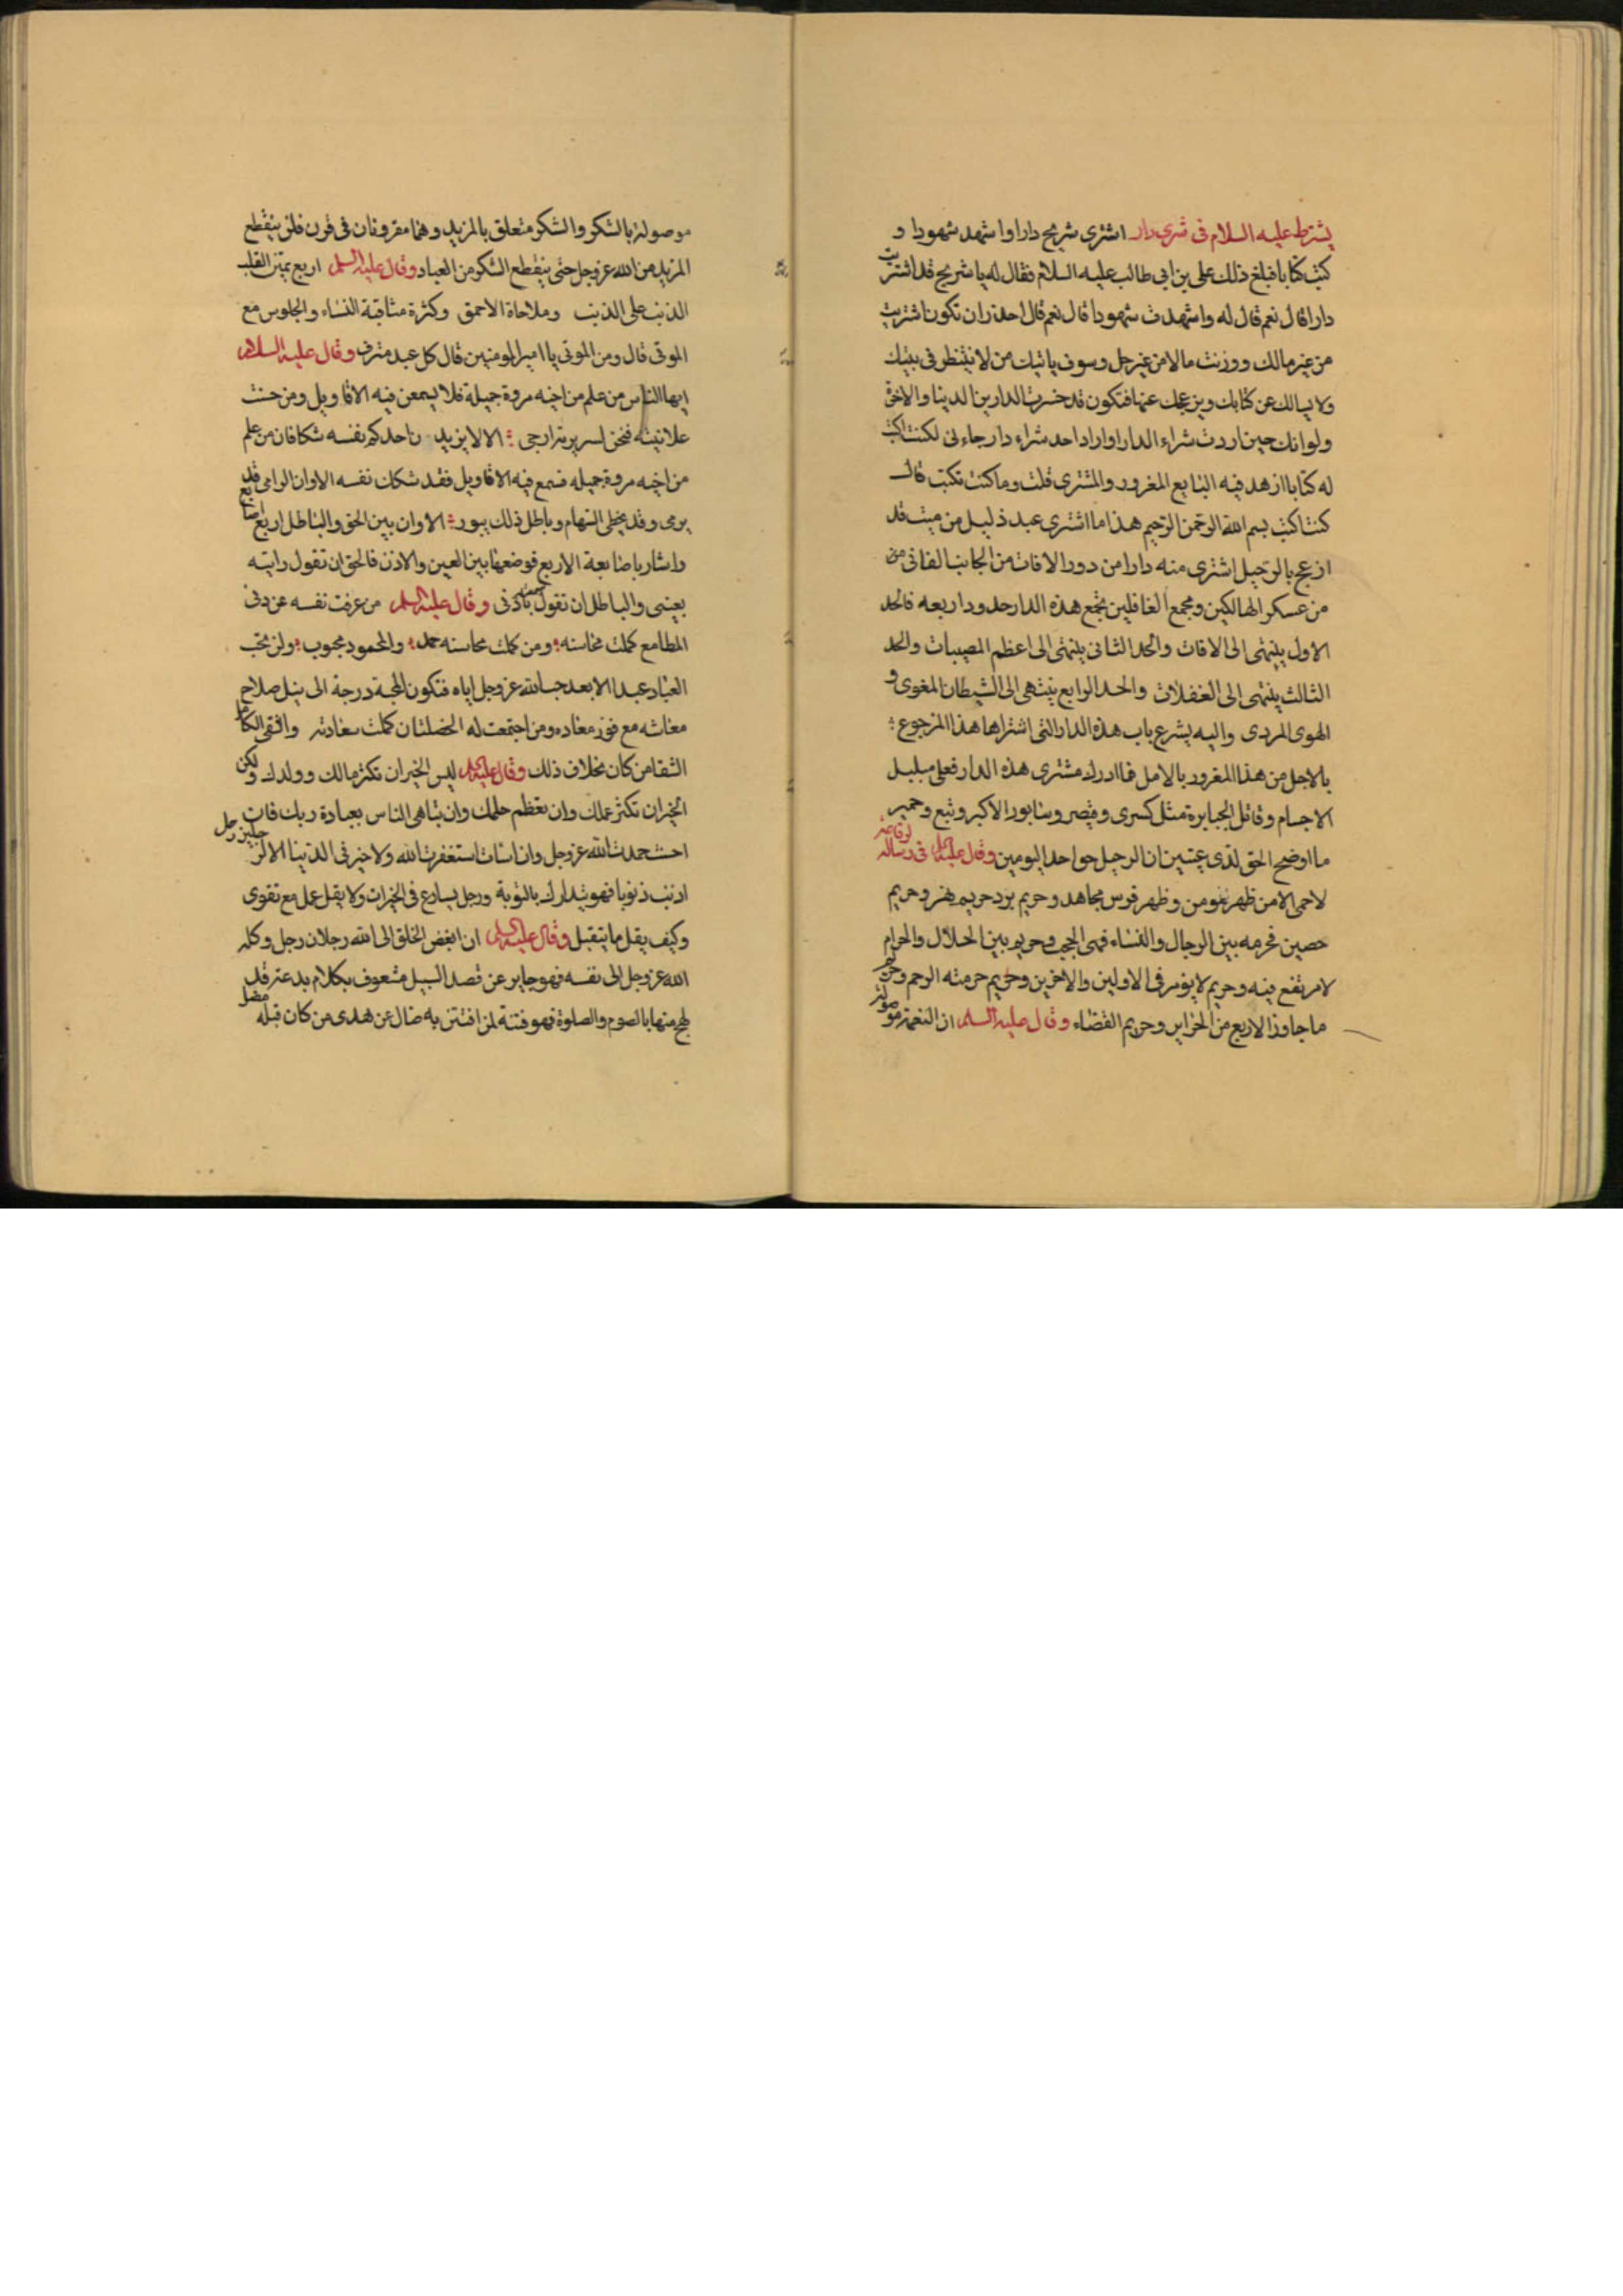 يشترط عليه السلام فى شرى دار اشترى شريح دارا واشهد شهودا و
كتب كتابا فبلغ ذلك على بن ابى طالب عليه السلام فقال له يا شريح قد اشتريت
دارا قال نعم قال له واشهدت شهودا قال نعم قال احذر ان تكون اشتريت
من غير مالك ووزنت مالا من غير حل وسوف ياتيك من لا ينظر فى بيتك
ولا يسالك عن كتابك ويزعجك عنها فتكون قد خسرت الدارين الدنيا والاخرة
ولو انك حين اردت شراء الدار او اراد احد شراء دار جاءنى لكنت اكتب
له كتابا ازهد فيه البايع المغرور والمشترى قلت وما كنت تكتب قال
كنت اكتب بسم الله الرحمن الرحيم هذا ما اشترى عبد ذليل من ميت قد
ازعج بالرحيل اشترى منه دارا من دور الافات من الجانب الفانى من
من عسكر الهالكين ومجمع الغافلين يجمع هذه الدار حدود اربعه فالحد
الاول ينتهى الى الافات والحد الثانى ينتهى الى اعظم المصيبات والحد
الثالث ينتهى الى الغفلات والحد الرابع ينتهى الى الشيطان المغوى و
الهوى المردى واليه يشرع باب هذه الدار التى اشتراها هذا المزجوع
بالاجل من هذا المغرور بالامل فما ادرك مشترى هذه الدار فعلى مبلبل
الاجسام وقاتل الجبابرة مثل كسرى وقيصر وسابور الاكبر وتبع وحمير
ما اوضح الحق لذى عينين ان الرحيل حد اليومين وقال عليه السلم فى رسالة لرفاعه
لاحمى الا من ظهر مومن وظهر فرس مجاهد وحريم بير وحريم نهر وحريم
حصين فحرمه بين الرجال والنساء فهى الحجب وحريم بين الحلال والحرام
لا مرتفع فيه وحريم لا يومر فى الاولين والاخرين وحريم حرمته الرحم وحرم
ما جاوز الاربع من الحراير وحريم القضاء وقال عليه السلم ان النعمة موصولة
موصولة بالشكر والشكر متعلق بالمزيد وهما مقرونان فى قرن فلن ينقطع
المزيد من الله عز وجل حتى ينقطع الشكر من العباد وقال عليه السلم اربع يمتن القلب
الذنب على الذنب وملاحاة الاحمق وكثرة مثاقبة النساء والجلوس مع
الموتى قال ومن الموتى يا امير المومنين قال كل عبد مترف وقال عليه السلام
ايها الناس من علم من اخيه مروة جميلة فلا يسمعن فيه الاقاويل ومن حسنت
علانيته فنحن لسريرته ارجى الا لا يزيدن احدكم نفسه شكا فان من علم
من اخيه مروة جميله فسمع فيه الاقاويل فقد شكك نفسه الا وان الرامى قد
يرمى وقد يخطى السهام وباطل ذلك يبور الا وان بين الحق والباطل اربع اصابع
واشار باصابعه الاربع فوضعها بين العين والاذن فالحق ان تقول رايته
بعينى والباطل ان تقول سمعت باذنى وقال عليه السلم من عزفت نفسه عن دنى
المطامع كملت محاسنه ومن كملت محاسنه حمد والمحمود محبوب ولن يحب
العباد عبدا الا بعد حب الله عز وجل اياه فتكون المحبة درجة الى نيل صلاح
معاشه مع فوز معاده ومن اجتمعت له الخصلتان كملت سعادته والشقى الكامل
الشقا من كان بخلاف ذلك وقال عليه السلم ليس الخير ان تكثر مالك وولدك ولكن
الخير ان تكثر عملك وان يعظم حلمك وان تباهى الناس بعبادة ربك فان
احسنت حمدت الله عز وجل وان اسات استغفرت الله ولا خير فى الدنيا الا لرجلين رجل
اذنب ذنوبا فهو يتدارك بالتوبة ورجل يسارع فى الخيرات ولا يقل عمل مع تقوى
وكيف يقل ما يتقبل وقال عليه السلم ان ابغض الخلق الى الله رجلان رجل وكله
الله عز وجل الى نفسه فهو جاير عن قصد السبيل مشعوف بكلام بدعة قد
لهج منها بالصوم والصلوة فهو فتنة لمن افتتن به ضال عن هدى من كان قبله مضل